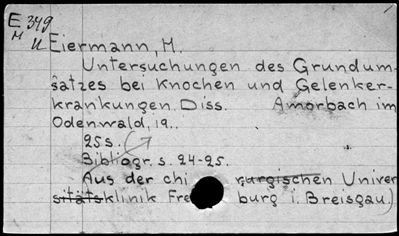 E 349
M
U
Eiermann, M.
Untersuchungen des Grundum-
satzes bei Knochen und Gelenker-
krankungen. Diss. Amorbach im
Odenwald, 19..
25 s.
Bibliogr. s. 24-25.
(Aus der chi rurgischen Univer
sitätsklinik Fre burg i. Breisgau.)